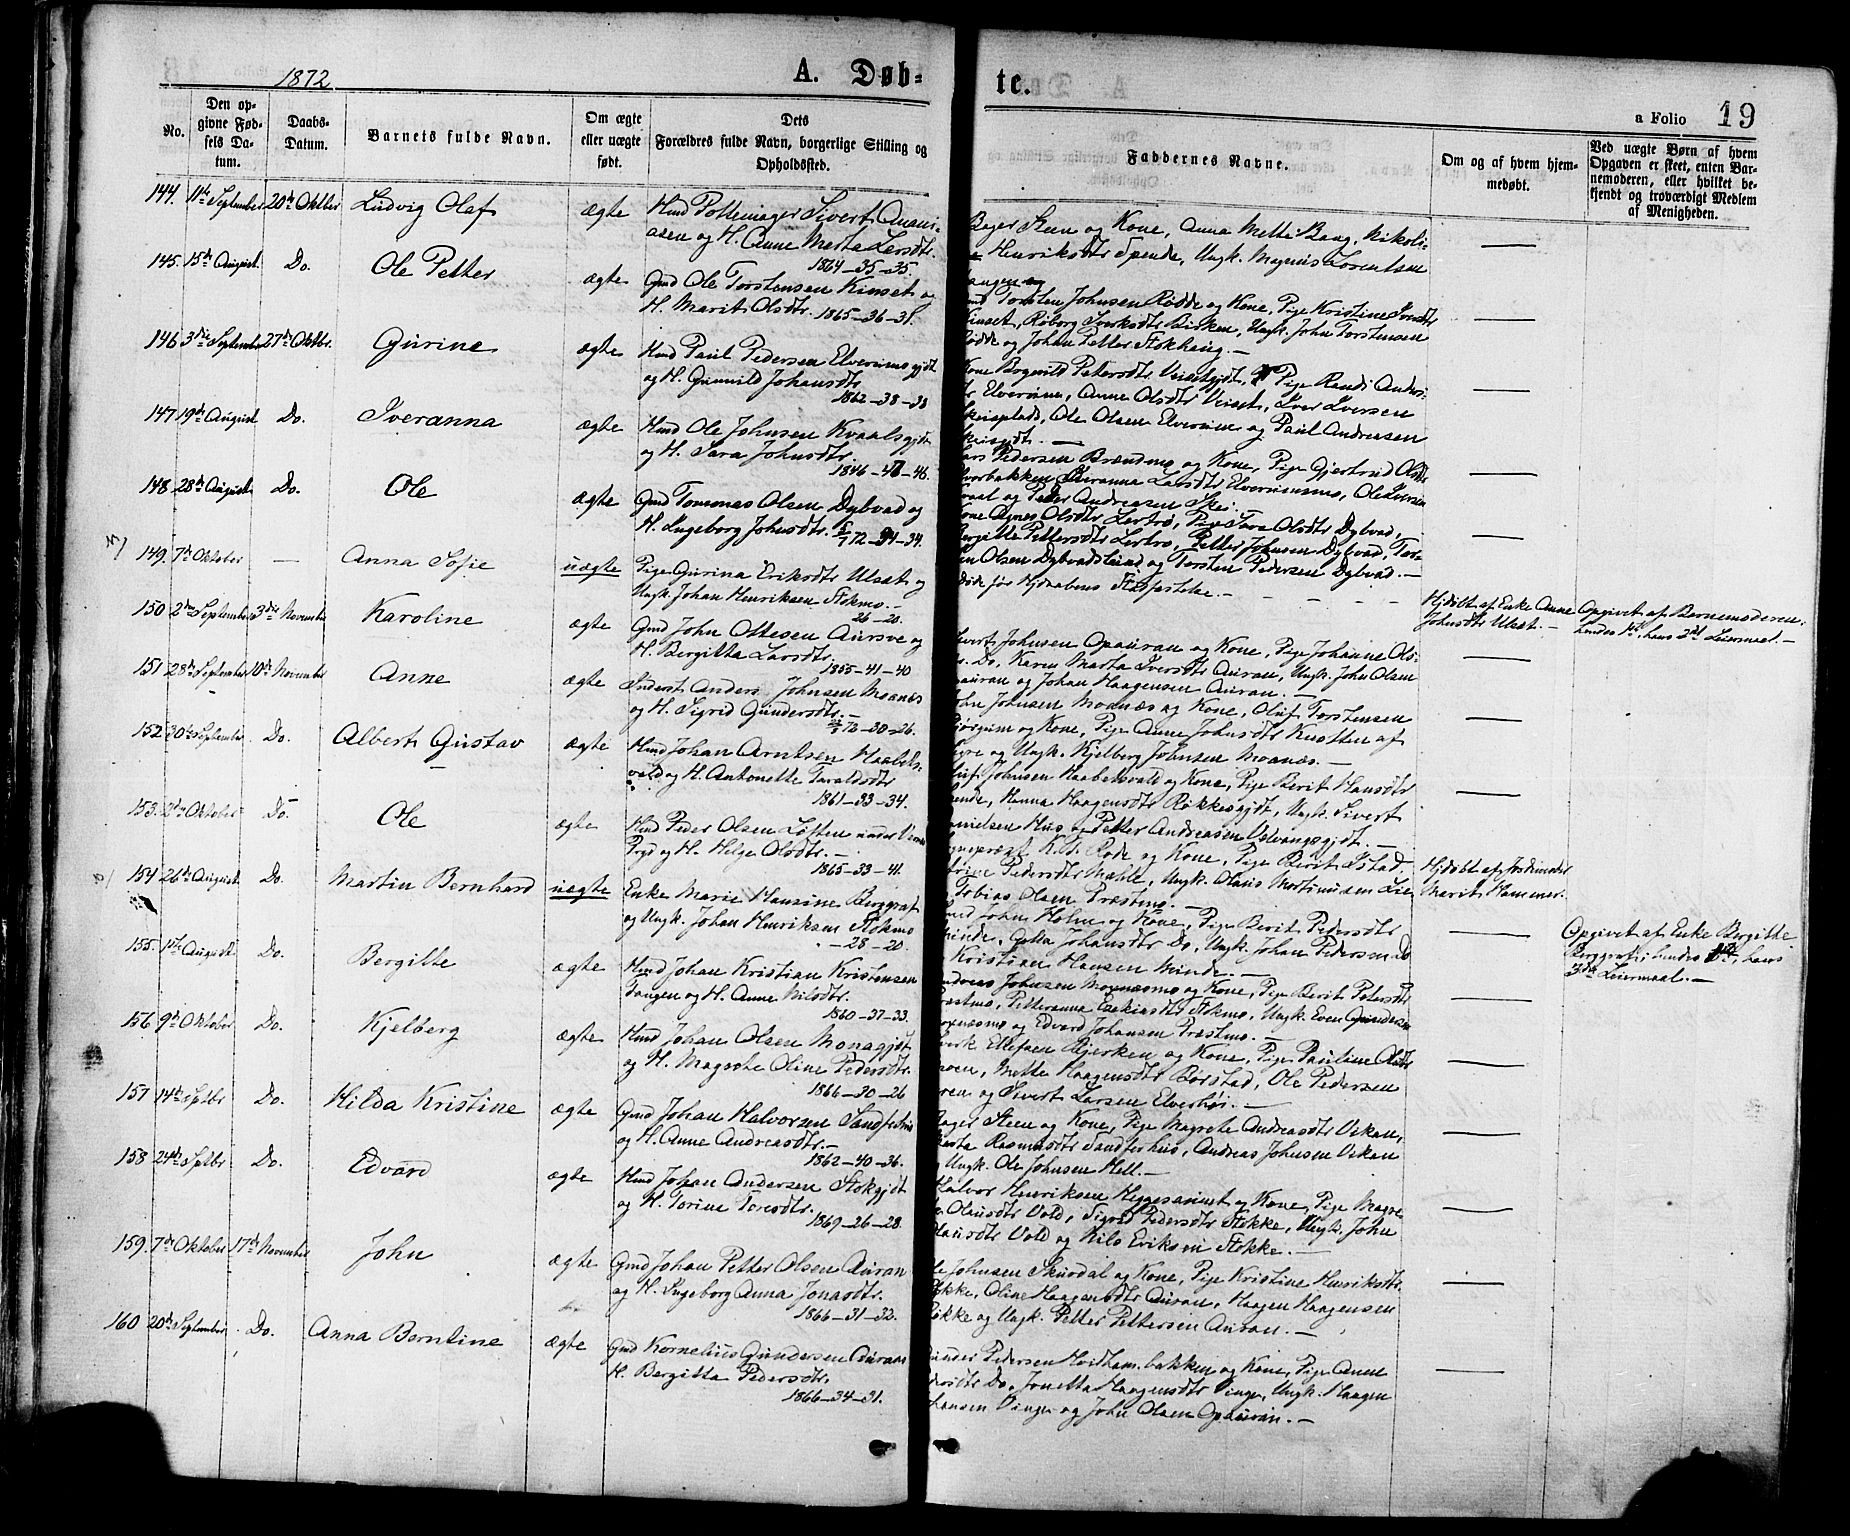 1872
A. Døb-
te.
a Folio 19
No.
Den op-
givne Fød-
sels Da-
tum.
Daabs-
Datum.
Barnets fulde Navn.
Om ægte
eller uægte
født.
Dets
Forældres fulde Navn, borgerlige Stilling og
Opholdssted.
Faddernes Navne.
Om og af hvem hjem-
medøbt.
Ved uægte Børn af hvem
Opgaven er skeet, enten Bar-
nemoderen, eller hvilket be-
kjendt og troværdigt Medlem
af Menigheden.
144. 11te September 20de Oktber Ludvig Olaf ægte Hmd Pottemager Sivert Anani-
asen og H. Anne Marta Larsdtr.
1864-35-35.
Steen og Kone, Anna Mette Bang, Nikoli-
Henriksdtr Spende, Ungk. Magnus Lorentsen
145. 15de August. Do. Ole Petter ægte Gmd Ole Torstensen Kinset og
H. Marit Olsdtr. 1865-36-31.
Torsten Johnsen Rødde og Kone, Pige Kristine
Ungk. John Torstensen
Rødde og Johan Petter Stokhaug.-
146 3die September 27de Oktbr. Gurine ægte Hmd Paul Pedersen Elverumsgjdt
og H. Gunnild Johansdtr
1862-38-38
Kone Pige Randi Anders-
Elverum, Anne Olsdtr Iver Iversen
Ole Olsen Elverum og Paul Andreasen
147 19de August Do. Iveranna ægte Hmd Ole Johnsen Kvaalsgjdt
og H. Sara Johnsdtr.
1846-47-46.
Lars Pedersen Brændmo og Kone, Pige Gjertrud Olsdtr
Iveranna Larsdtr Elverumsmo, Ole Iversen
og Peter Andreasen Skei.
148. 28de August. Do. Ole ægte Gmd Tommas Olsen Dybvad og
H. Ingeborg Johnsdtr. 72-34-34.
Kone Agnes Olsdtr Lertrø, Pige Sara Olsdtr Dybvad,
Bergitte Pettersdtr Lertrø, Petter Johnsen Dybvad, Tor-
Olsen Dybvadslund og Torsten Pedersen Dybvad.-
149. 7de Oktober - Anna Sofie uægte Pige Gurina Eriksdtr Ulset og
Ungk. Johan Henriksen Stokmo.-
26-20.
Døde før Hjdaabens Stadfæstelse.-
Hjdøbt af Enke Anne
Johnsdtr Ulset.-
Opgivet af Barnemoderen;
hendes 1ste, hans 2det Leiermaal.-
150 2den September 3die November Karoline ægte Gmd John Ottesen Aursve og
H. Bergitta Larsdtr.
1855-41-40
Sivert Johnsen Opauran og Kone, Pige Johanne Ols-
Do, Karen Marta Iversdtr Auran, Ungk. John Olsen
Opauran og Johan Haagensen Auran.-
151 28de September 10de November Anne ægte Inderst Anders Johnsen Moanæs
og H. Sigrid Gundersdtr.-
72-30-26.
John Johnsen Moanæs og Kone, Oluf Torstensen
og Kone, Pige Anne Johnsdtr Knotten af
og Ungk. Kjelberg Johnsen Moanæs.-
152 30te September Do. Albert Gustav ægte Hmd Johan Arntsen Haabets-
vald og H. Antonette Taraldsdtr
1861-33-34.
Oluf Johnsen Haabetsvald og Kone, Pige Berit Hansdtr
Hanna Haagensdtr Røkkesgjdt, Ungk. Sivert
Danielsen Hus og Petter Andreasen
153. 2den Oktober Do. Ole ægte Hmd Peder Olsen Løften under
og H. Helge Olsdtr.-
1865-33-41.
Rode og Kone, Pige Berit
Pedersdtr Mæhle, Ungk. Olaus Martinusen Lie
Tobias Olsen Præstmo.-
154 26de August Do. Martin Bernhard uægte Enke Marie Hansine Berggraf
og Ungk. Johan Henriksen Stokmo
-28-20.
John Holm og Kone, Pige Berit Pedersdtr
Johansdtr Do, Ungk. Johan Pedersen Do
Kristian Hansen Minde.-
Hjdøbt af Jordemoder
Marit Hammer.
Opgivet af Enke Bergitte
Berggraf; hendes hans
3die Leiermaal.-
155. 1ste August Do. Bergitte ægte Hmd Johan Kristian Kristensen
Tangen og H. Anne Nilsdtr.
1860-37-33.
Andreas Johnsen Moanæsmo og Kone, Pige Berit Petersdtr
Præstmo, Petteranna Esekiasdtr Stokmo, Ungk. Even Gundersen
Moanæsmo og Edvard Johansen Præstmo.-
156 9de Oktober Do. Kjelberg ægte Hmd Johan Olsen Monagjdt
og H. Magrete Oline Pedersdtr.
1866-30-26
Ellefsen Bjerken og Kone, Pige Pauline Olsdtr
Mette Haagensdtr Borstad, Ole Pedersen
og Sivert Larsen Elverhøi.-
157 14de Septbr Do. Hilda Kristine ægte Gmd Johan Halvorsen Sandferhus
og H. Anne Andreasdtr.-
1862-40-36.
Steen og Kone, Pige Magrete Andreasdtr Vikan,
Marta Rasmusdtr Sandferhus, Andreas Johnsen Vikan
Ungk. Ole Johnsen Hell.-
158 24de Septbr Do. Edvard ægte Hmd Johan Andersen Stokgjdt
og H. Torine Toresdtr.
1869-26-28.
Halvor Henriksen Heggesannet og Kone, Pige Magre-
Olausdtr Vold, Sigrid Pedersdtr Stokke, Ungk. John
Olausdtr Vold og Nils Eriksen Stokke.-
159. 7de Oktober 17de November John ægte Gmd Johan Petter Olsen Auran
og H. Ingeborg Anna Jonasdtr.
1866-31-32.
Ole Johnsen Skurdal og Kone, Pige Kristine Henriksdtr.
Oline Haagensdtr Auran, Haagen Haagensen
og Ungk. Petter Pettersen Auran.-
160 20de September. Do. Anna Berntine ægte Gmd Kornelius Gundersen Auran
H. Bergitta Pedersdtr.
1866-34-31.
Gunder Pedersen Hvidhambakken og Kone, Pige Anne
Do, Jonetta Haagensdtr Vinge, Ungk. Haagen
Johansen Vinge og John Olsen Opauran.-